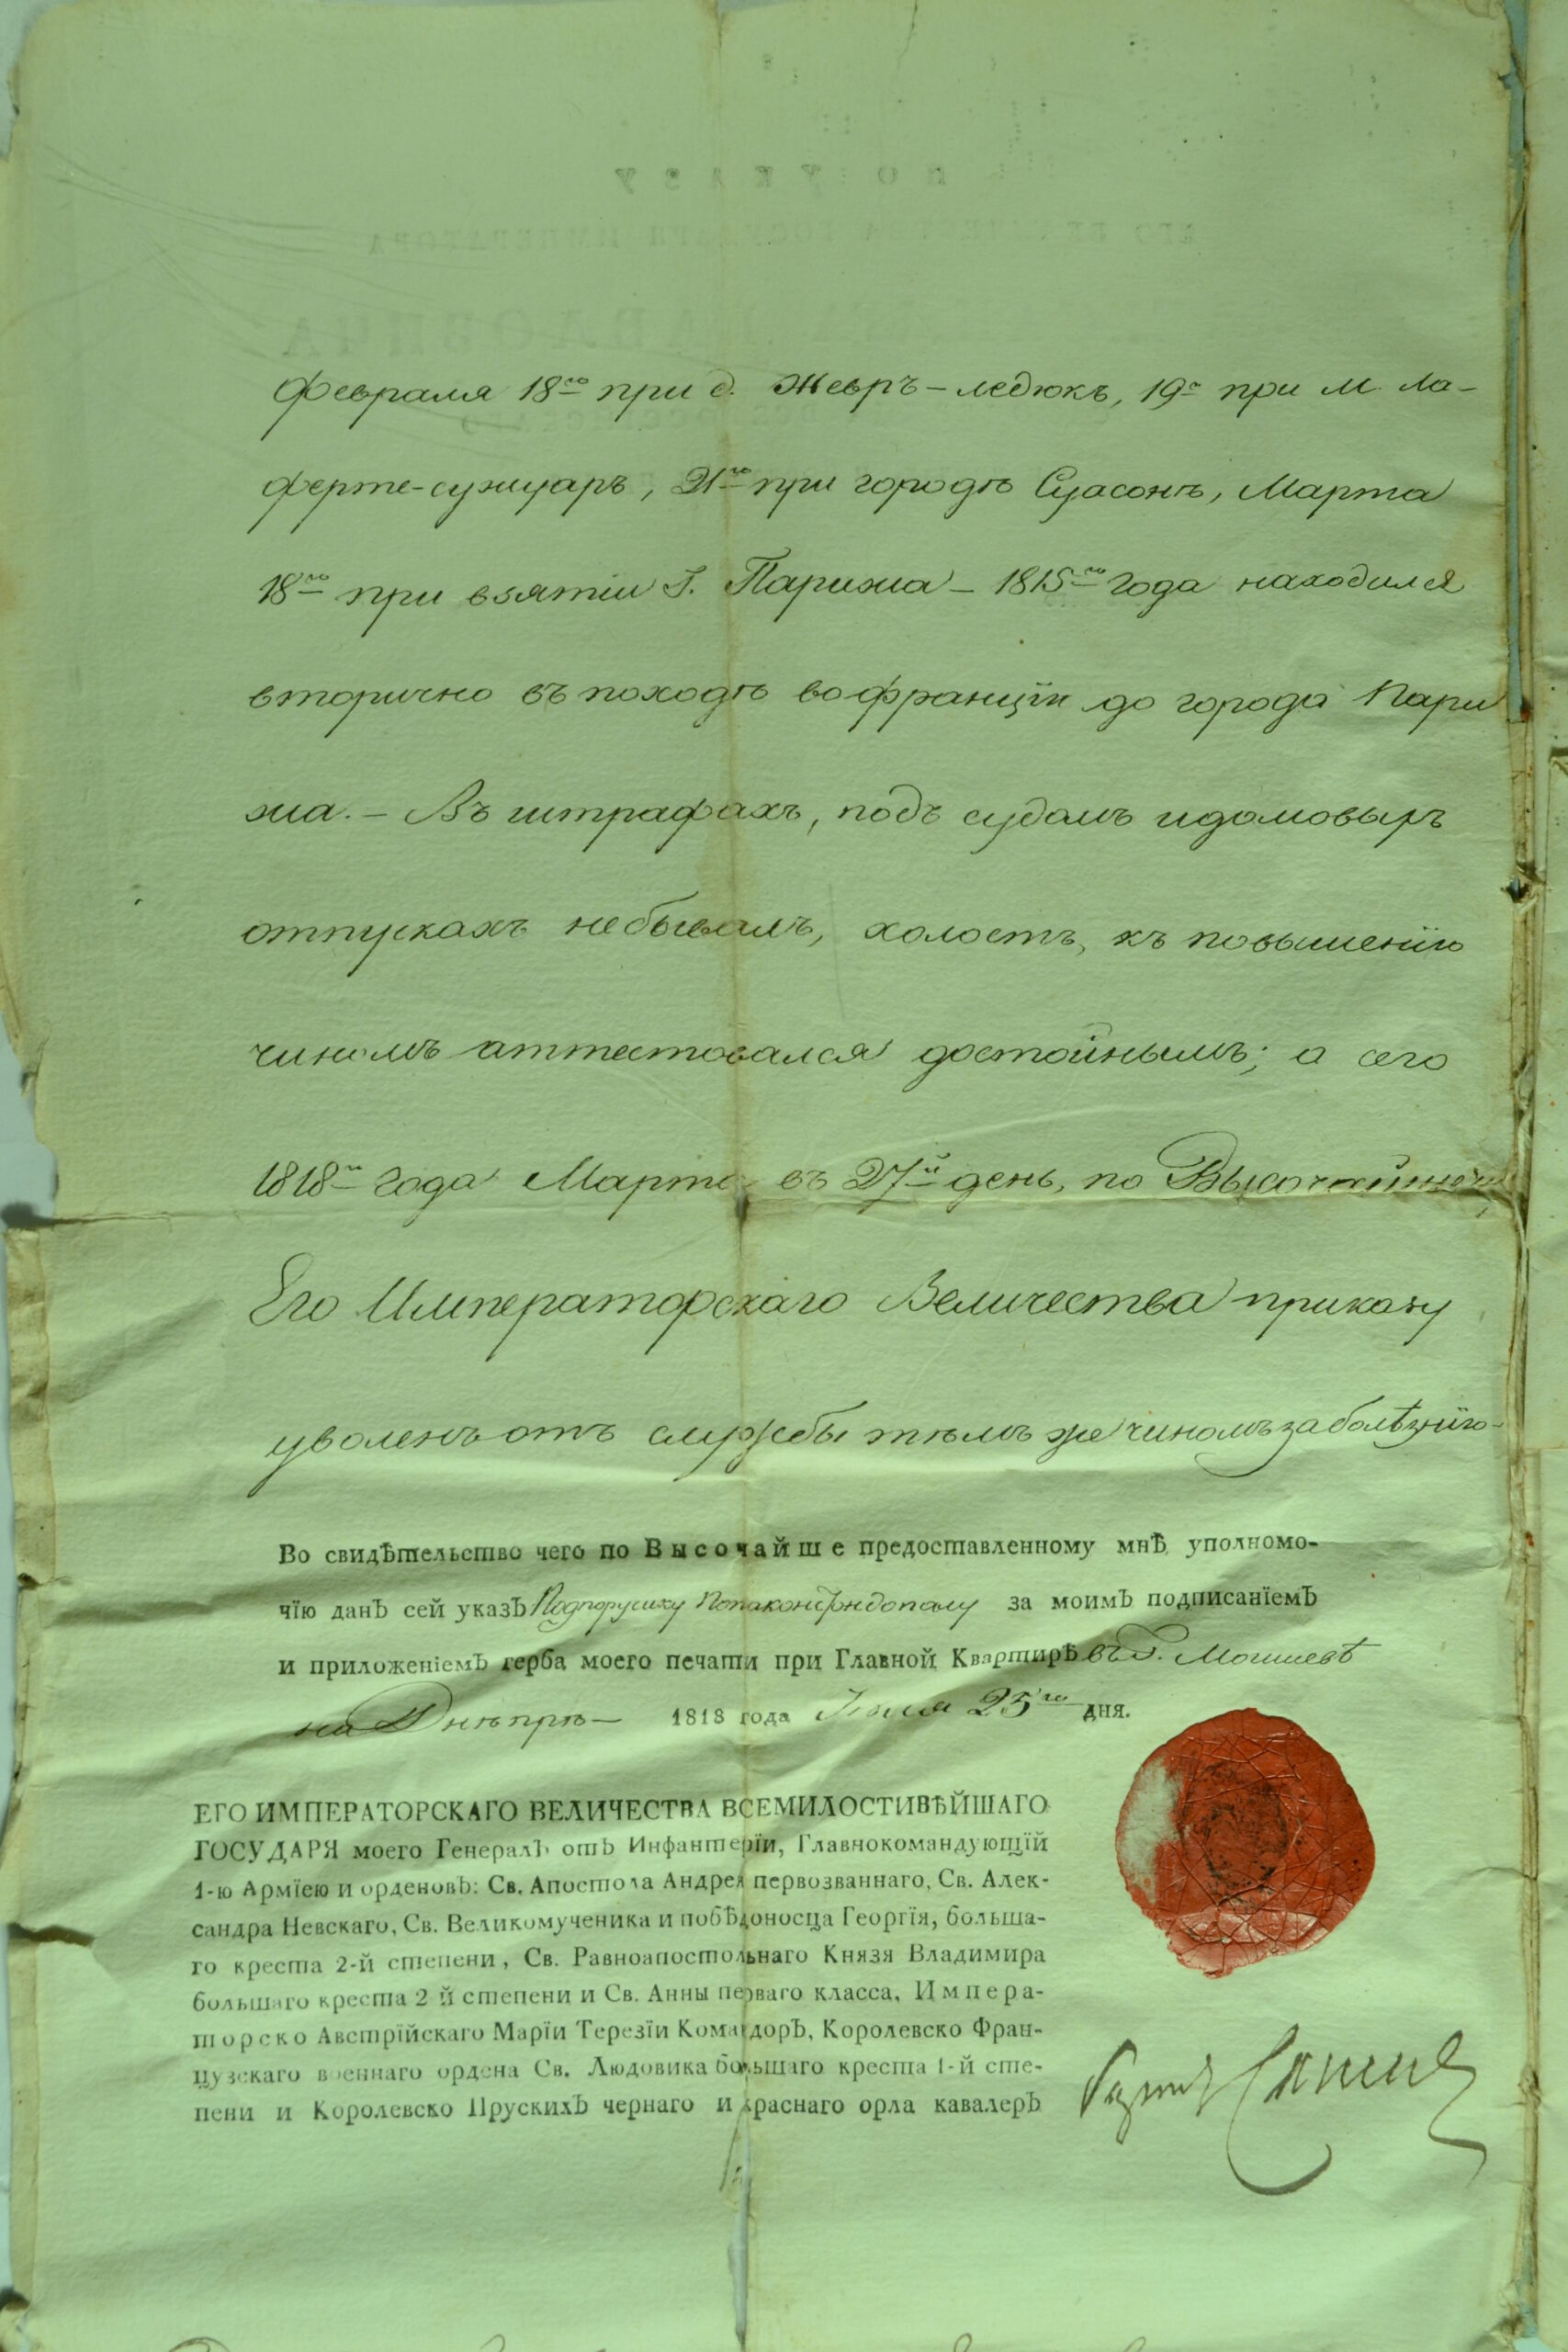 Февраля 18го при д. Жевръ-ледюкъ, 19г при м. Ла-
ферте-сужуаръ, 21го при городѣ Суасонѣ, Марта
18го при взятіи Г. Парижа – 1815го года находился
вторично въ походѣ во франціи до города Пари
жа. – Въ штрафахъ, подъ судомъ идомовыхъ
отпускахъ небывалъ, холостъ, къ повышенію
чиномъ аттестовался достойнымъ; а сего
1818го года Марта въ 27й день, по Высочайшему
Его Императорскаго Величества приказу
уволенъ отъ службы тѣмъ же чиномъ за болѣзнію-
Во свидѣтельство чего по Высочайше предоставленному мнѣ уполномо-
чїю данЪ сей указЪ Подпоручику за моимЪ подписанїемЪ
и приложенїемЪ герба моего печати при Главной Квартирѣ въ Г. Могилевѣ
на Днѣпрѣ – 1818 года 25го дня.
ЕГО ИМПЕРАТОРСКАГО ВЕЛИЧЕСТВА ВСЕМИЛОСТИВѢЙШАГО
ГОСУДАРЯ моего ГенералЪ отЪ Инфантерїи, Главнокомандующїй
1-ю Армїею и орденовЪ: Св. Апостола Андрея первозваннаго, Св. Алек-
сандра Невскаго, Св. Великомученика и побѣдоносца Георгїя, больша-
го креста 2-й степени, Св. Равноапостольнаго Князя Владимира
большаго креста 2 й степени и Св. Анны перваго класса, Импера-
торско Австрїйскаго Марїи Терезїи КомандорЪ, Королевско Фран-
цузскаго военнаго ордена Св. Людовика большаго креста 1-й сте-
пени и Королевско ПрускихЪ чернаго и краснаго орла кавалерЪ